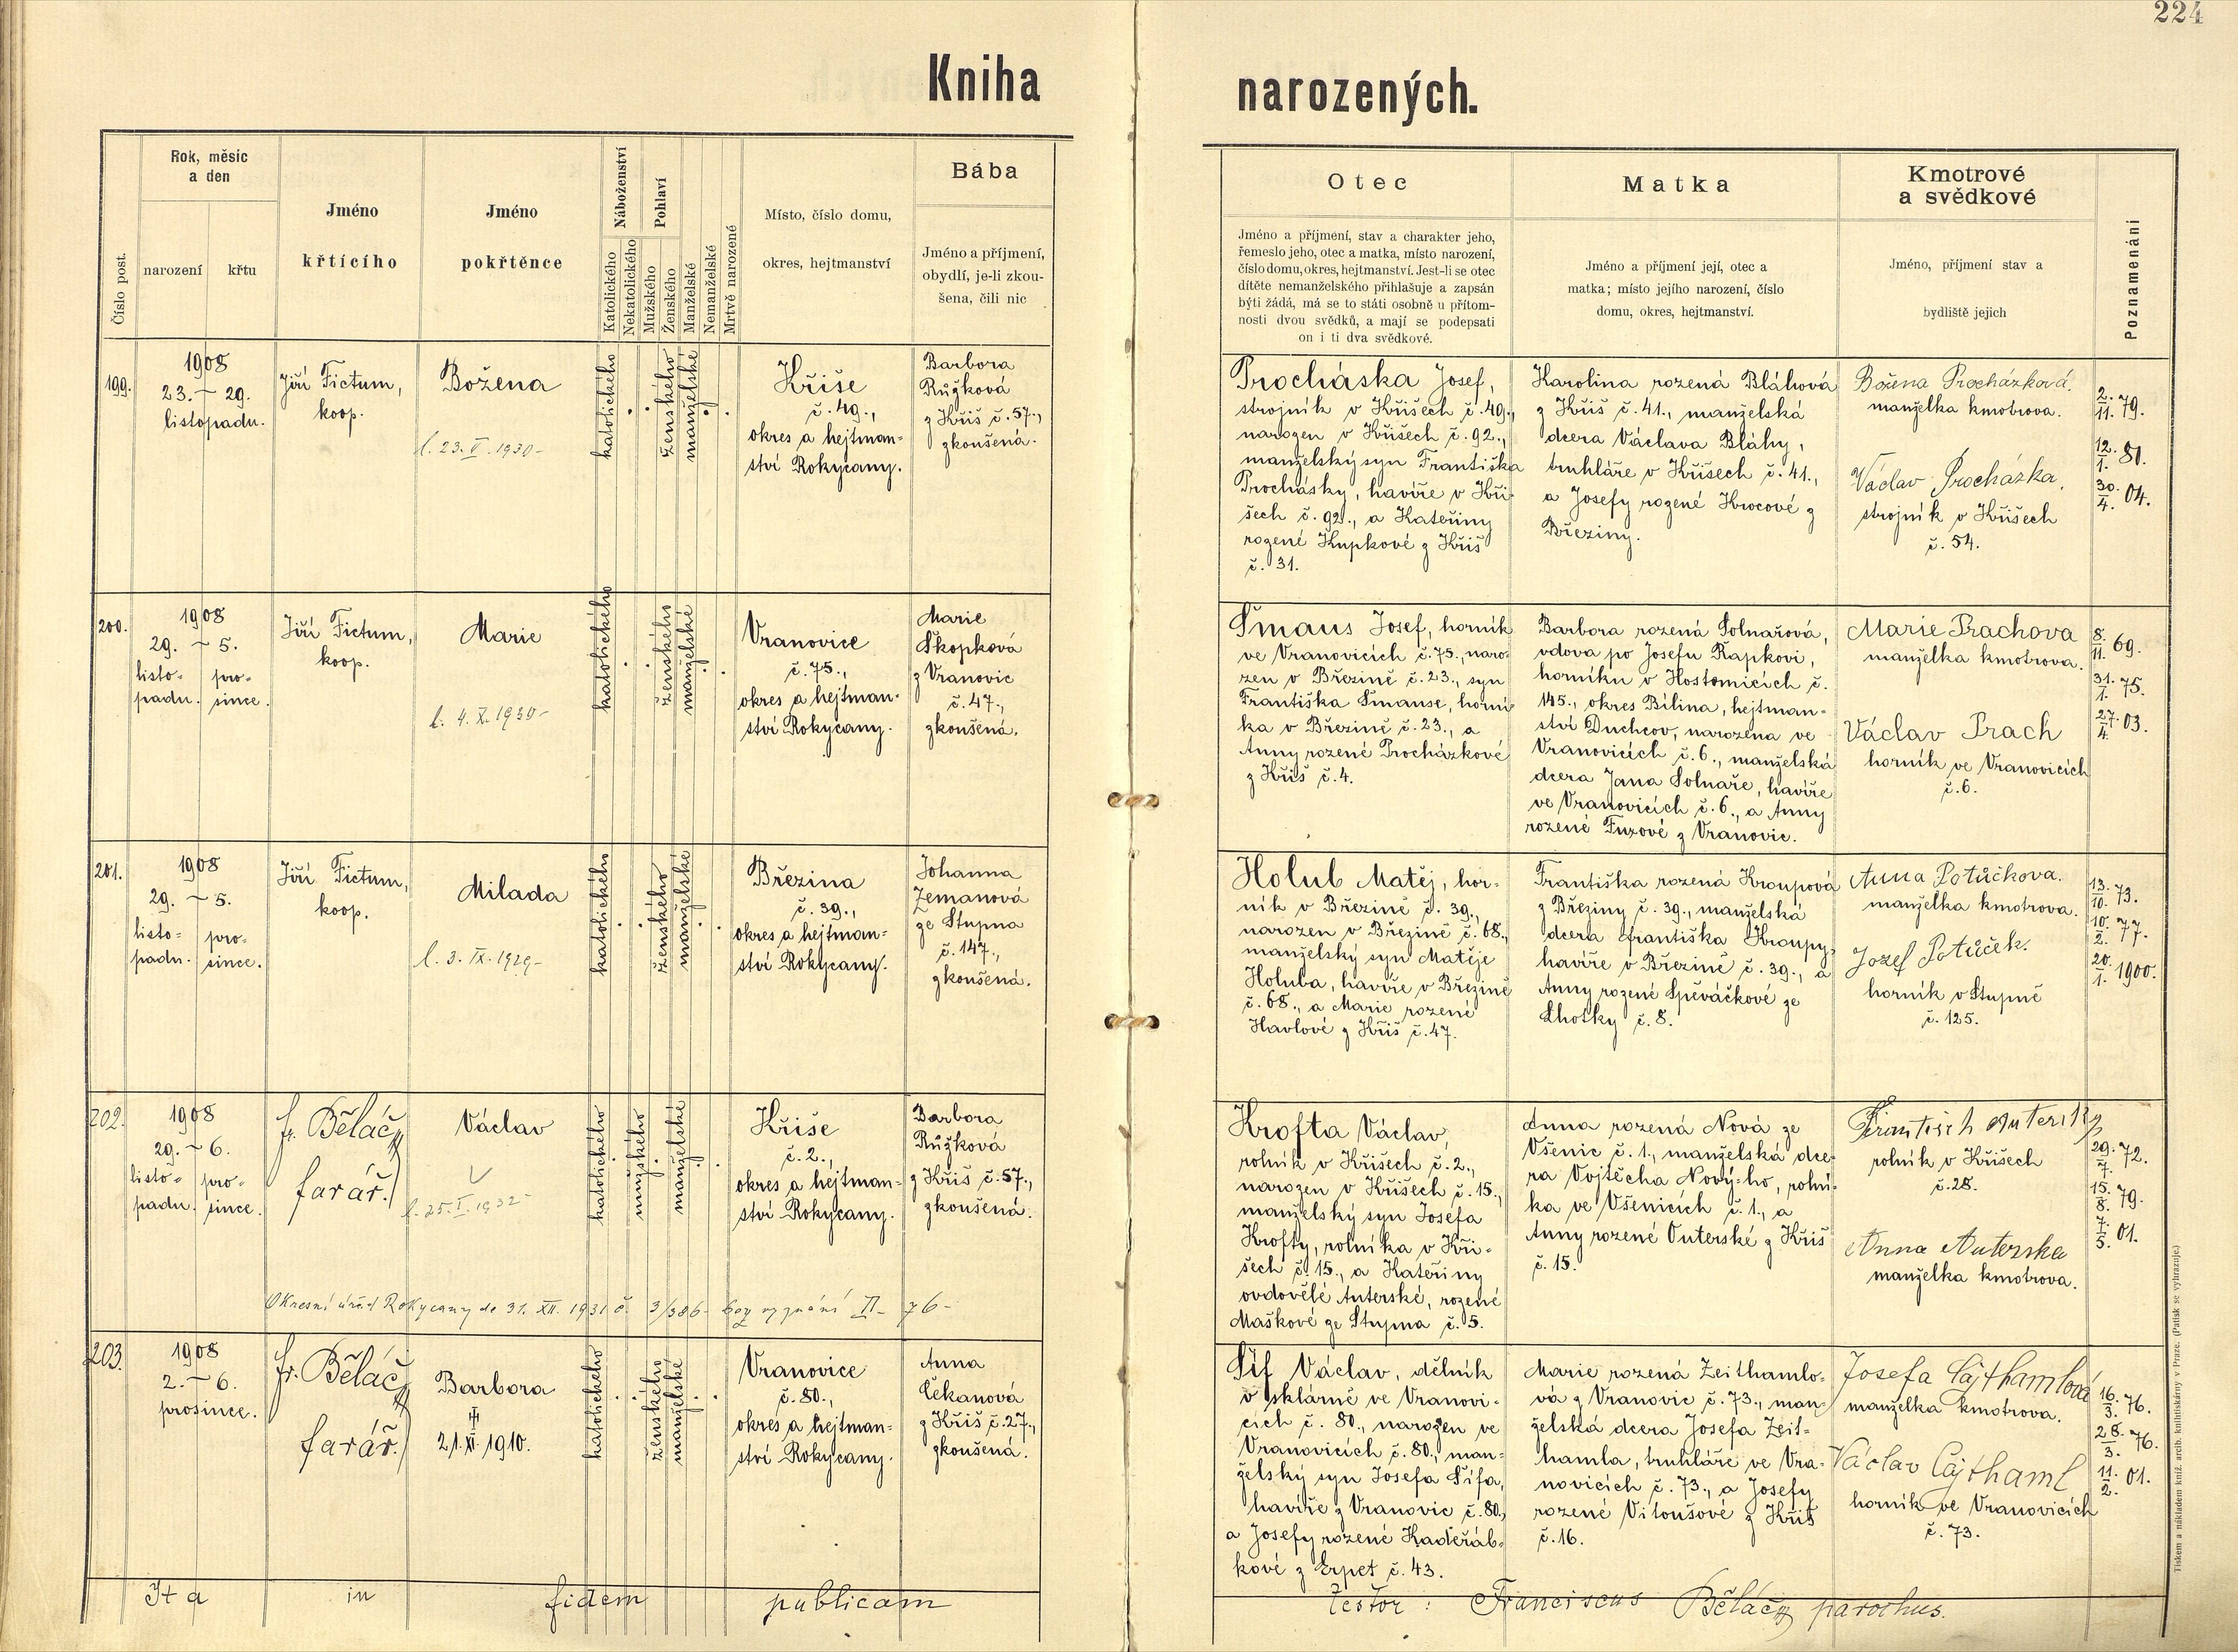 224
Kniha
narozených.
Číslo post.
Rok, měsíc
a den
narození
křtu
Jméno
křtícího
Jméno
pokřtěnce
Náboženství
Katolického
Nekatolického
Pohlaví
Mužského
Ženského
Manželské
Nemanželské
Mrtvě narozené
Místo, číslo domu,
okres, hejtmanství
Bába
Jméno a příjmení,
obydlí, je-li zkou-
šena, čili nic
Otec
Jméno a příjmení, stav a charakter jeho,
řemeslo jeho, otec a matka, místo narození,
číslo domu, okres, hejtmanství. Jest-li se otec
dítěte nemanželského přihlašuje a zapsán
býti žádá, má se to státi osobně u přítom-
nosti dvou svědků, a mají se podepsati
on i ti dva svědkové.
Matka
Jméno a příjmení její, otec a
matka; místo jejího narození, číslo
domu, okres, hejtmanství.
Kmotrové
a svědkové
Jméno, příjmení stav a
bydliště jejich
Poznamenání
199.
1908
23. ~ 29.
listopadu.
Jiří Fictum,
koop.
Božena
l. 23. V. 1930-
katolického
ženského
manželské
Kříše
č. 49.,
okres a hejtman-
ství Rokycany.
Barbora
Růžková
z Kříš č. 57.,
zkoušená.
Procháska Josef,
strojník v Kříšech č. 49.,
narozen v Kříšech č. 92.,
manželský syn Františka
Prochásky, havíře v Kří-
šech č. 92., a Kateřiny
rozené Kupkové z Kříš
č. 31.
Karolina rozená Bláhová
z Kříš č. 41., manželská
dcera Václava Bláhy,
truhláře v Kříšech č. 41.,
a Josefy rozené Krocové z
Březiny.
Božena Procházková.
manželka kmotrova.
Václav Procházka,
strojník v Kříšech
č. 54.
2./11. 79.
12./1. 81.
30./4. 04.
200.
1908
29. ~ 5.
listo- pro-
padu. since.
Jiří Fictum,
koop.
Marie
l. 4. X. 1930-
katolického
ženského
manželské
Vranovice
č. 75.,
okres a hejtman-
ství Rokycany.
Marie
Skopková
z Vranovic
č. 47.,
zkoušená.
Šmaus Josef, horník
ve Vranovicích č. 75., naro-
zen v Březině č. 23., syn
Františka Šmause, horní-
ka v Březině č. 23., a
Anny rozené Procházkové
z Kříš č. 4.
Barbora rozená Solnařová,
vdova po Josefu Rapkovi,
horníku v Hostomicích č.
145., okres Bílina, hejtman-
ství Duchcov, narozena ve
Vranovicích č. 6., manželská
dcera Jana Solnaře, havíře
ve Vranovicích č. 6., a Anny
rozené Fuxové z Vranovic.
Marie Prachova
manželka kmotrova.
Václav Prach
horník ve Vranovicích
č. 6.
8./11. 69.
31./1. 75.
27./4. 03.
201.
1908
29. ~ 5.
listo- pro-
padu. since.
Jiří Fictum,
koop.
Milada
l. 3. IX. 1929-
katolického
ženského
manželské
Březina
č. 39.,
okres a hejtman-
ství Rokycany.
Johanna
Zemanová
ze Stupna
č. 147.,
zkoušená.
Holub Matěj, hor-
ník v Březině č. 39.,
narozen v Březině č. 68.,
manželský syn Matěje
Holuba, havíře v Březině
č. 68., a Marie rozené
Havlové z Kříš č. 47.
Františka rozená Kroupová
z Březiny č. 39., manželská
dcera Františka Kroupy,
havíře v Březině č. 39., a
Anny rozené Spěváčkové ze
Lhotky č. 8.
Anna Potůčkova.
manželka kmotrova.
Jozef Potůček.
horník v Stupně
č. 125.
13./10. 73.
10./2. 77.
20./1. 1900.
202.
1908
29. ~ 6.
listo- pro-
padu. since.
fr. Běláč
farář.
Václav
l. 25. I. 1932-
katolického
mužského
manželské
Kříše
č. 2.,
okres a hejtman-
ství Rokycany.
Barbora
Růžková
z Kříš č. 57.,
zkoušená.
Okresní úřad Rokycany de 31. XII. 1931 č. 3/386- bez vyznání II- 76-
Krofta Václav,
rolník v Kříšech č. 2.,
narozen v Kříšech č. 15.,
manželský syn Josefa
Krofty, rolníka v Kří-
šech č. 15., a Kateřiny
ovdovělé Auterské, rozené
Maškové ze Stupna č. 5.
Anna rozená Nová ze
Všenic č. 1., manželská dce-
ra Vojtěcha Nový-ho, rolní-
ka ve Všenicích č. 1., a
Anny rozené Outerské z Kříš
č. 15.
rolník v Kříšech
č. 28.
Anna Auterska
manželka kmotrova.
29./7. 72.
15./8. 79.
7./5. 01.
203.
1908
2. ~ 6.
prosince.
fr. Běláč
farář.
Barbora
21. XI. 1910.
katolického
ženského
manželské
Vranovice
č. 80.,
okres a hejtman-
ství Rokycany.
Anna
Čekanová
z Kříš č. 27.,
zkoušená.
Šíf Václav, dělník
v sklárně ve Vranovi-
cích č. 80., narozen ve
Vranovicích č. 80., man-
želský syn Josefa Šífa,
havíře z Vranovic č. 80.,
a Josefy rozené Kadeřáb-
kové z Erpet č. 43.
Marie rozená Zeithamlo-
vá z Vranovic č. 73., man-
želská dcera Josefa Zeit-
hamla, truhláře ve Vra-
novicích č. 73., a Josefy
rozené Vitoušové z Kříš
č. 16.
Josefa Cajthamlová
manželka kmotrova.
Václav Cajthaml
horník ve Vranovicích
č. 73.
16./3. 76.
28./3. 76.
11./2. 01.
Ita in fidem publicam
testor: Franciscus Běláč parochus.
Tiskem a nákladem kníž. arcib. knihtiskárny v Praze. (Patisk se vyhrazuje.)